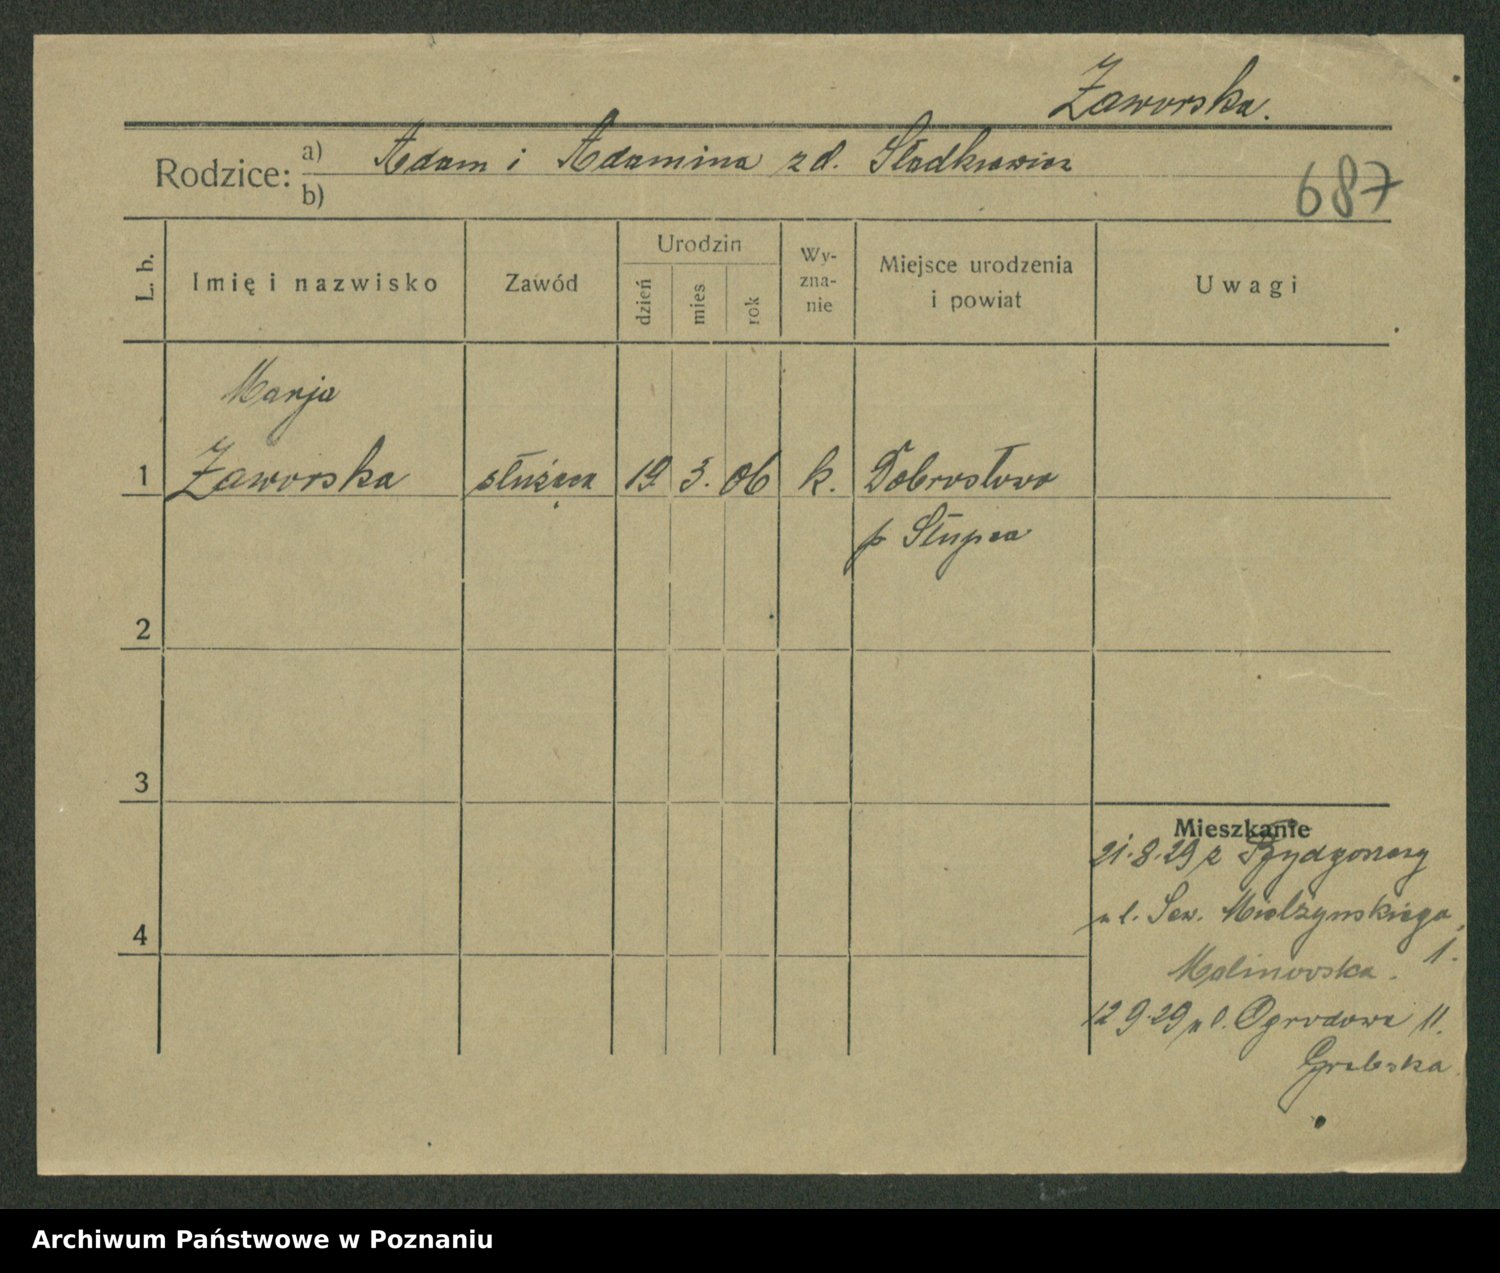 Zaworska.
Rodzice: a) Adam i Adamina zd. Sladkiewicz
b)
687
L. b.
Imię i nazwisko
Zawód
Urodzin
dzień
mies
rok
Wy-
zna-
nie
Miejsce urodzenia
i powiat
Uwagi
Marja
1 Zaworska służąca 19. 3. 06 k. Dobrosłowo
p Słupca
2
3
Mieszkanie
21.8.29 z Bydgoszczy
ul. Sew. Mielżynskiego
1.
4
Malinowska.
12 9.29 ul. Ogrodowa 11.
Grabska.
Archiwum Państwowe w Poznaniu